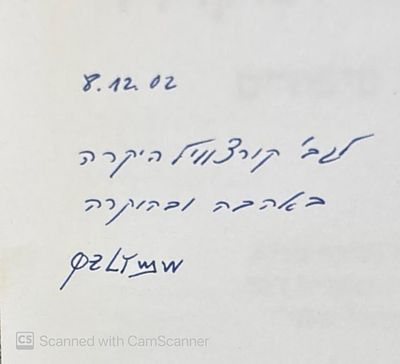 8.12.02
לגב' קורצווייל היקרה
באהבה ובהוקרה
CS Scanned with CamScanner